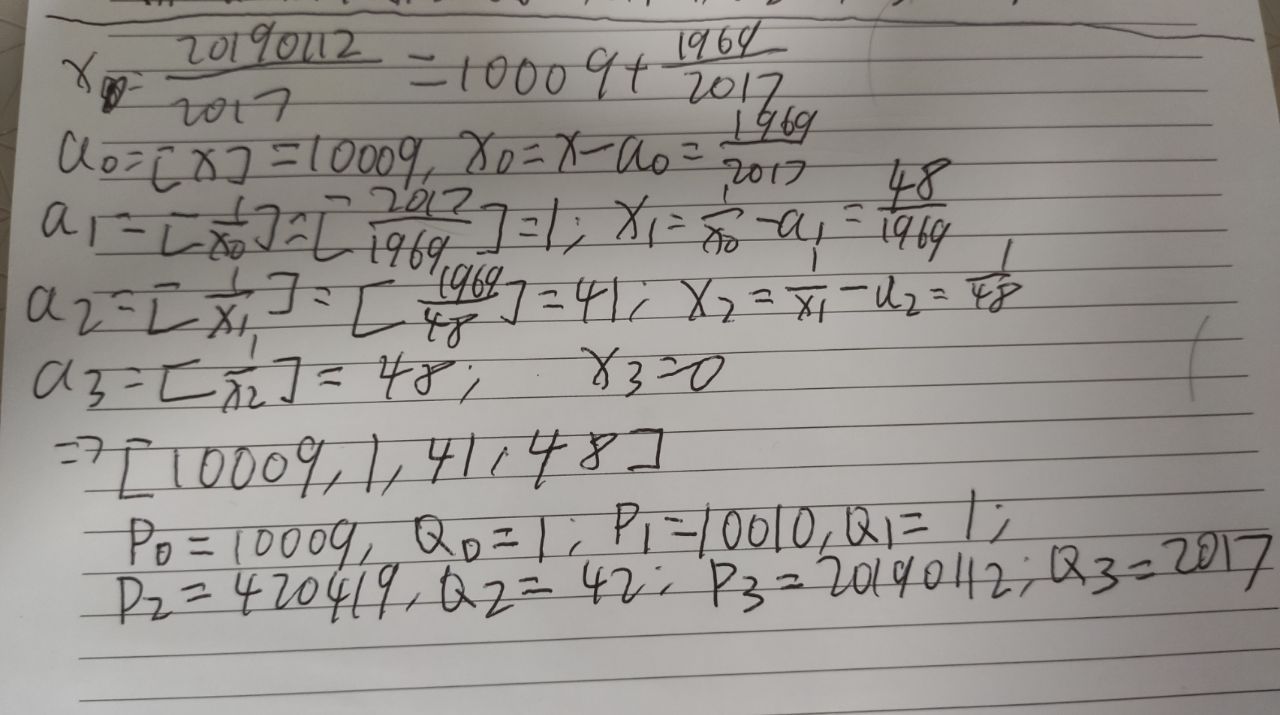 x = 20190112/2017 = 10009 + 1969/2017
a0 = [x] = 10009, x0 = x - a0 = 1969/2017
a1 = [1/x0] = [2017/1969] = 1; x1 = 1/x0 - a1 = 48/1969
a2 = [1/x1] = [1969/48] = 41; x2 = 1/x1 - a2 = 1/48
a3 = [1/x2] = 48; x3 = 0
=> [10009, 1, 41, 48]
P0 = 10009, Q0 = 1; P1 = 10010, Q1 = 1;
P2 = 420419, Q2 = 42; P3 = 20190112; Q3 = 2017